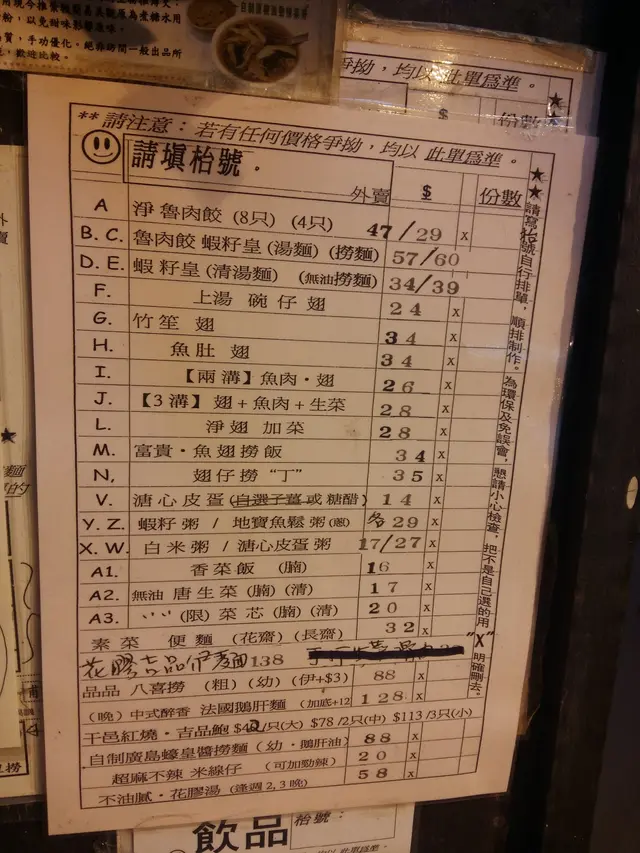 自制廣島蠔油
粉，以免甜味影響進味。
均以 此單為準。
$
份數
** 請注意： 若有任何價格爭拗，均以 此單為準。
請填枱號。
外賣 $ 份數
A 淨 魯肉餃 (8只) (4只) 47/29 x
B. C. 魯肉餃 蝦籽皇 (湯麵) (撈麵) 57/60
D. E. 蝦 籽皇 (清湯麵) (無油撈麵) 34/39
F. 上湯 碗 仔 翅 24 x
G. 竹笙 翅 34 x
H. 魚肚 翅 34 x
I. 【兩溝】魚肉·翅 26 x
J. 【3溝】翅+魚肉+生菜 28 x
L. 淨翅 加菜 28 x
M. 富貴·魚翅撈飯 34 x
N, 翅仔撈 “丁” 35 x
V. 溏心皮蛋(自選子薑或糖醋) 14 x
Y. Z. 蝦籽粥 / 地寶魚鬆粥(蔥) 各29 x
X. W. 白米粥 / 溏心皮蛋粥 17/27 x
A1. 香菜飯 (腩) 16 x
A2. 無油 唐生菜 (腩) (清) 17 x
A3. (限) 菜 芯 (腩) (清) 20 x
素菜 便麵 (花齋) (長齋) 32 x
花膠吉品便麵138
品品 八喜撈 (粗) (幼) (伊+$3) 88 x
(晚) 中式醉香 法國鵝肝麵 (加底+12 128 x
干邑紅燒·吉品鮑 /只(大) $78 /2只(中) $113 /3只(小)
自制廣島蠔皇醬撈麵 (幼·鵝肝油) 88 x
超麻不辣 米線仔 (可加勁辣) 20 x
不油膩·花膠湯 (逢週2,3晚) 58 x
★★請寫枱號自行排單，順排制作。為環保及免誤會，懇請小心檢查，把不是自己選的用"X"明確刪去。
飲品 枱號：